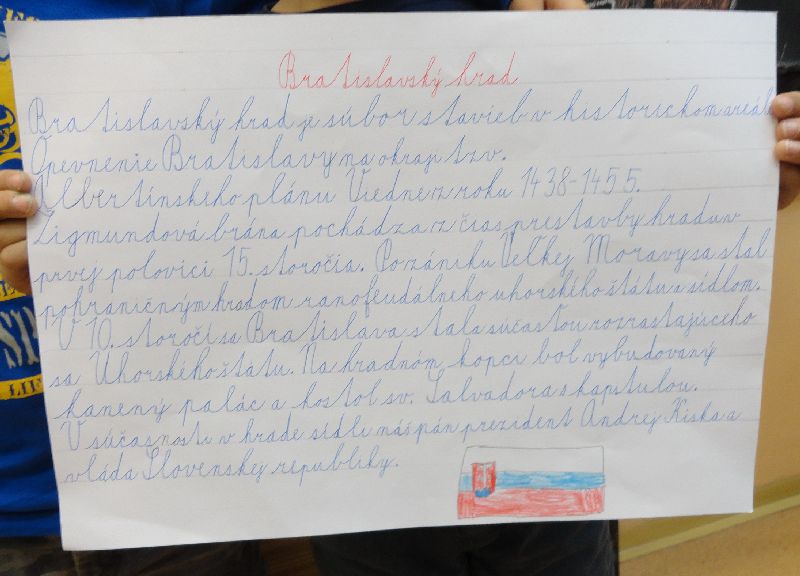 Bratislavský hrad
Bratislavský hrad je súbor stavieb v historickom areáli
Opevnenie Bratislavy na okraji tzv.
Albertínskeho plánu Viedne z roku 1438-1455.
Žigmundová brána pochádza z čias prestavby hradu v
prvej polovici 15. storočia. Po zániku Veľkej Moravy sa stal
pohraničným hradom ranofeudálneho uhorského štátu a sídlom.
V 10. storočí sa Bratislava stala súčasťou rozrastajúceho
sa Uhorského štátu. Na hradnom kopci bol vybudovaný
kamený palác a kostol sv. Salvadora s kapitulou.
V súčasnosti v hrade sídli náš pán prezident Andrej Kiska a
vláda Slovenskej republiky.